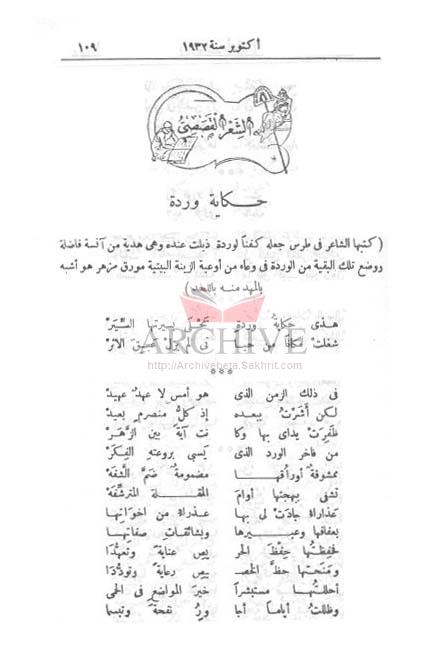 أكتوبر سنة ١٩٣٢ ١٠٩
الشعر القصصي
حكاية وردة
( كتبها الشاعر فى طرس جعله كفناً لوردة ذبلت عنده وهى هدية من آنسة فاضلة
ووضع تلك البقية من الوردة فى وعاء من أوعية الزينة البيتية مورق مزهر هو أشبه
بالمهد منه باللحد )
هذى حكايةُ وردةٍ سيرتها السِّيَرْ
شغلت مكاناً من عميق الأثرْ
ARCHIVE
http://Archivebeta.Sakhrit.com
***
فى ذلك الزمن الذى هو أمس لا عهدٌ عهيدْ
لكن أشَرْتُ ببعده إذ كلُّ منصرمٍ بعيدْ
ظفِرتْ يداى بها وكا نت آيةً بين الزَّهَرْ
من فاخر الورد الذى يسبى بروعتهِ الفِكَرْ
ممشوقةٌ أوراقُها مضمومةٌ ضمَّ الشَّفَهْ
تشفى ببهجتها أوامَ المقلة المترشِّفَهْ
كعذاراةٍ جادَتْ لى بها عذراءُ من اخواتِها
بعفافها وعبيرها وبشائقاتِ صفاتِها
فحفِظتُها حِفْظَ الحر يص عنايةً وتعهُّدَا
ومنحتها حظَّ الخصـ يص رعايةً وتودُّدَا
أحللتُها مستبشراً خيرَ المواضع فى الحمى
وظللتُ أياماً أُبا